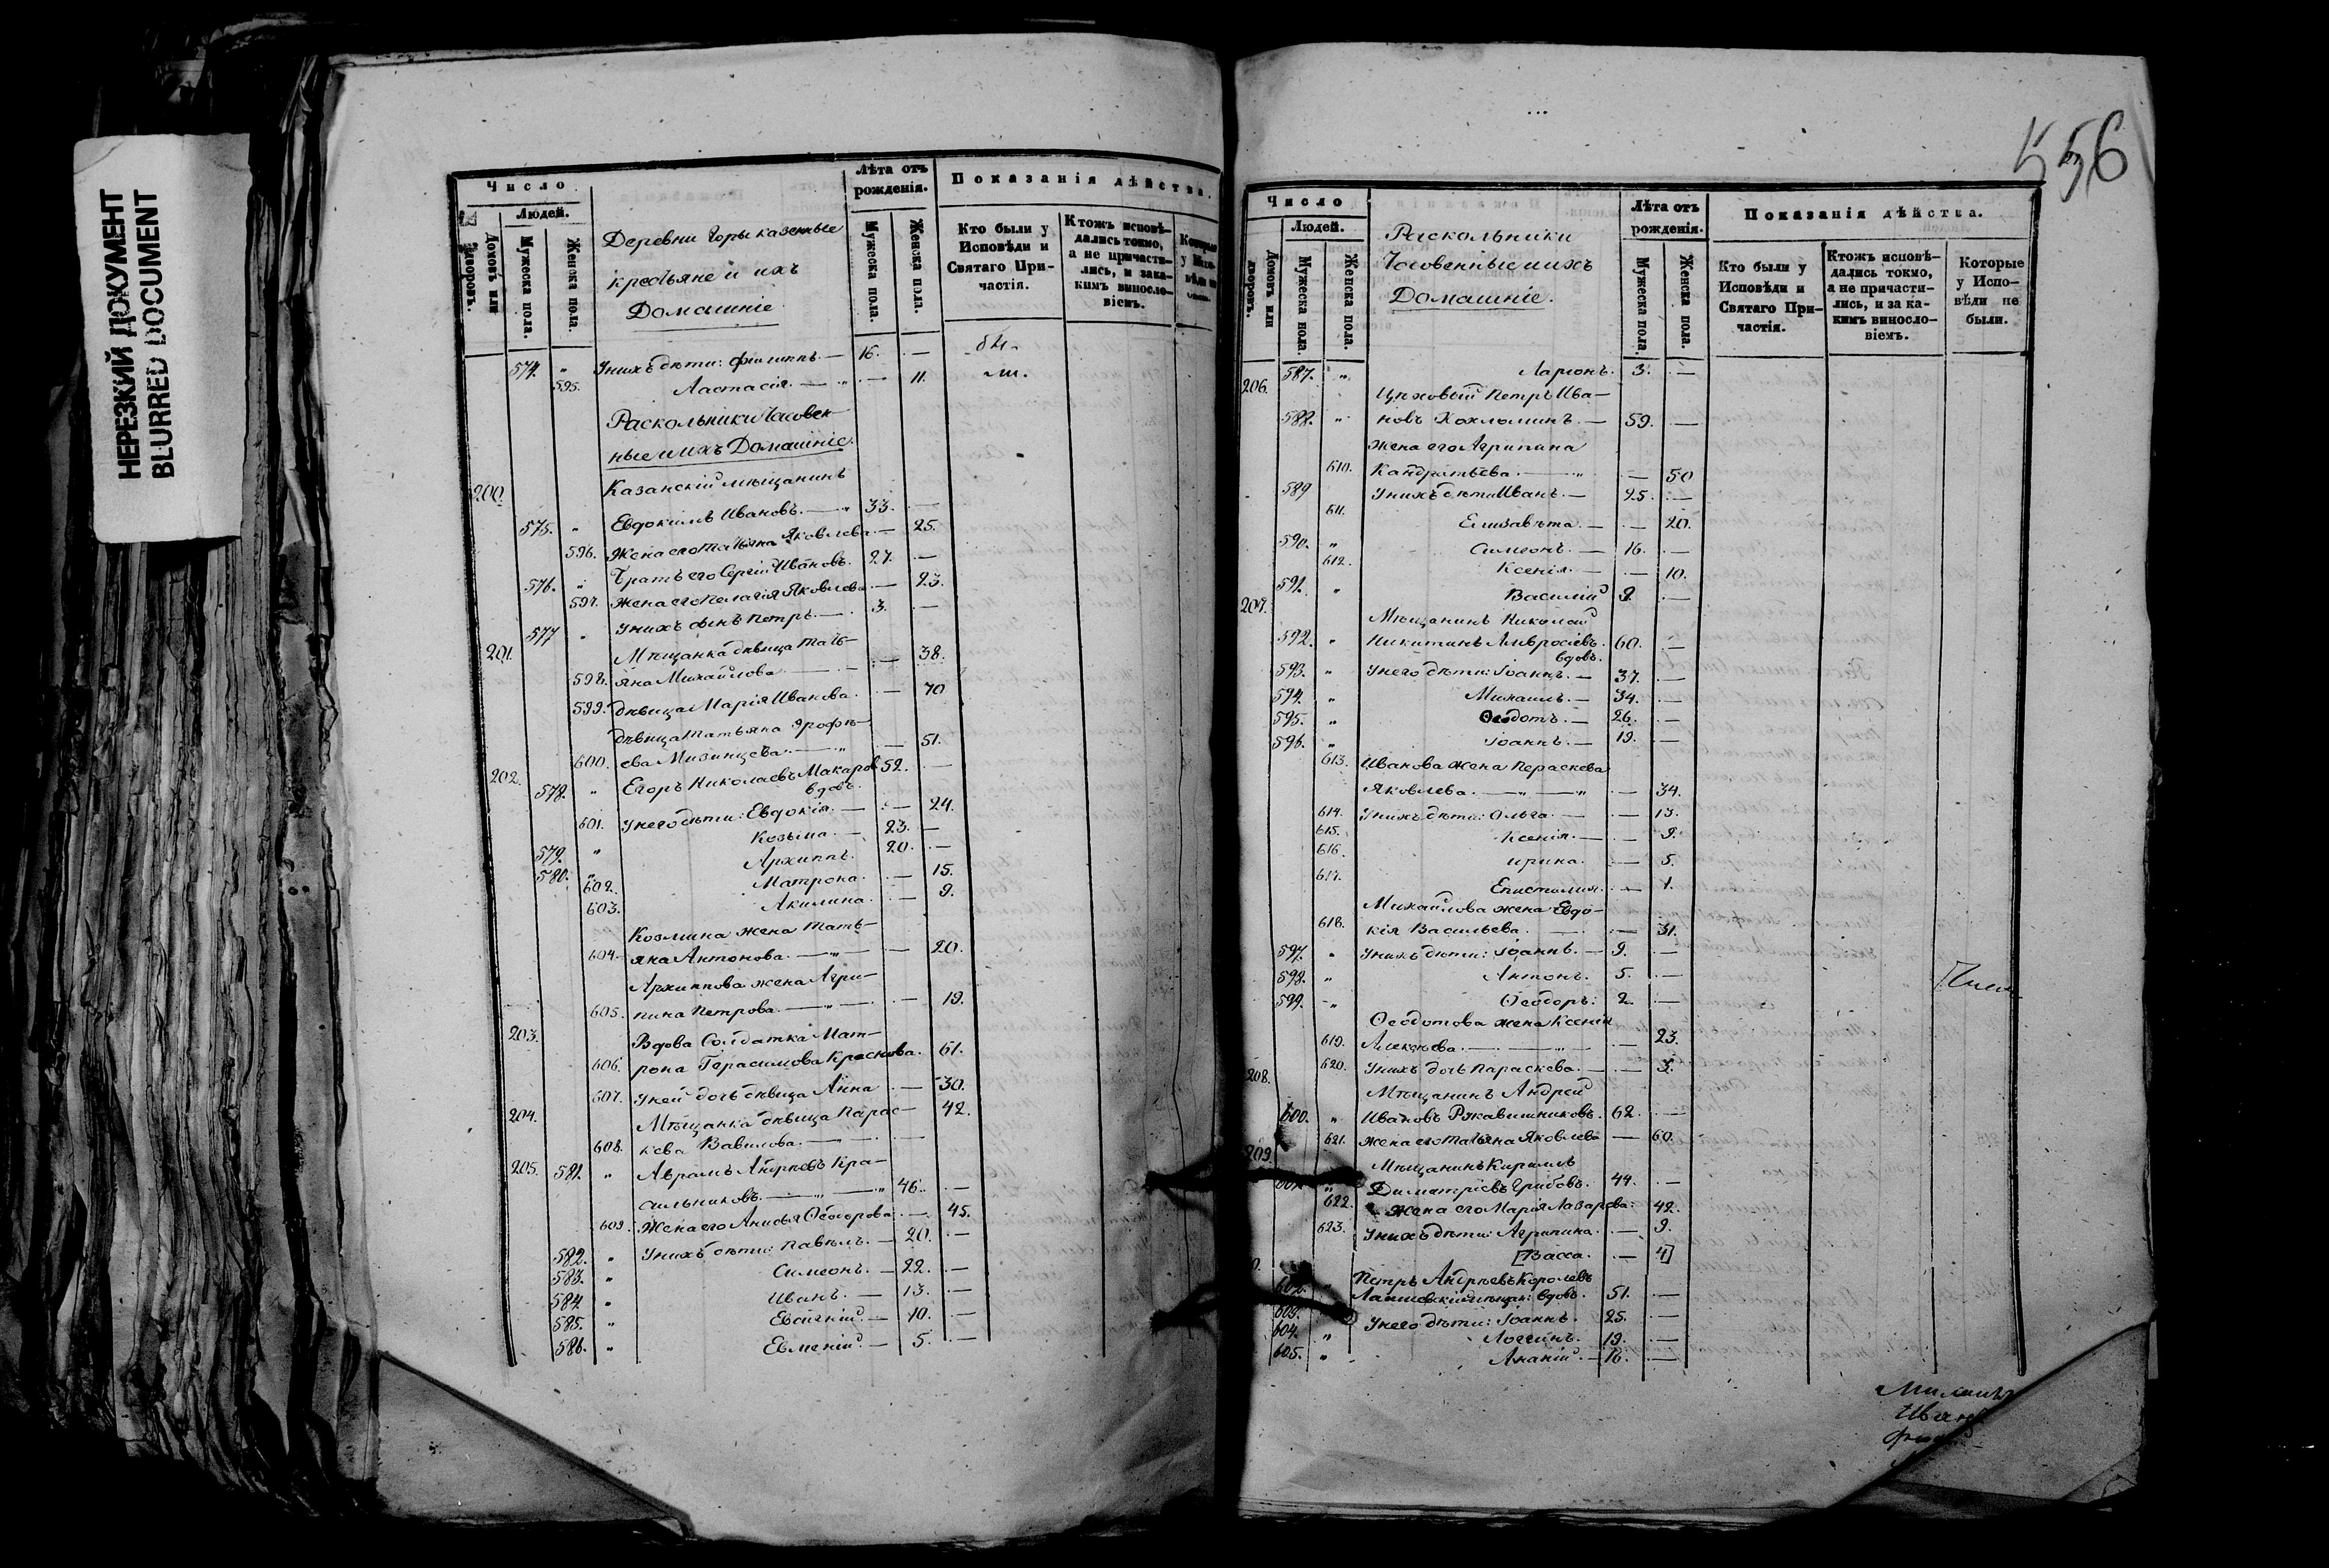 НЕРЕЗКИЙ ДОКУМЕНТ
BLURRED DOCUMENT
Число
Людей.
Домовъ или дворовъ.
Мужеска пола.
Женска пола.
Деревни Горы казенные
крестьяне и ихъ
Домашніе
Лѣта отъ рожденія.
Мужеска пола.
Женска пола.
Показанія дѣйства.
Кто были у Исповѣди и Святаго Причастія.
Ктожъ исповѣдались токмо, а не причастились, и за какимъ винословіемъ.
574. " У нихъ дѣти: Филиппъ. — 16. —
595. Анастасія. — " — 11.
Раскольники Часовен-
ные и ихъ Домашніе.
200. Казанскій мѣщанинъ
575. " Евдокимъ Ивановъ. — " 33. —
596. Жена его Татьяна Яковлева — 25.
576. " Братъ его Сергій Ивановъ. 27. —
597. Жена его Пелагія Яковлева — 23.
577 " У нихъ сынъ Петръ — 3. —
201. Мѣщанка дѣвица Тать-
598. яна Михайлова — 38.
599. дѣвица Марія Иванова. — 70
дѣвица Татьяна Ярофѣ-
600. ева Мизинцева. — " — 51.
202. 578. " Егоръ Николаевъ Макаровъ 52. —
вдовъ.
601. У него дѣти: Евдокія. — — 24.
579. " Козьма. — 23. —
580. " Архиппъ. 20. —
602. Матрона. — 15.
603. Акилина. — 9.
Козмина жена Тать-
604. яна Антонова. — " — 20.
Архиппова жена Агри-
605. пина Петрова. — " — 19.
203. Вдова Солдатка Мат-
606. рона Герасимова Краснова. 61.
607. У ней дочь дѣвица Анна — 30.
204. Мѣщанка дѣвица Парас- 42.
608. кева Вавилова. — " —
205. 581. " Аврамъ Андреевъ Кра-
сильниковъ. — " — " 46. —
609. Жена его Анисья Ѳеодорова — 45.
582. " У нихъ дѣти: Павелъ. — 20. —
583. " Симеонъ. — 22. —
584 " Иванъ. — 13. —
585. " — 10. —
586. " Евменій. — 5. —
556
Число
Людей.
Домовъ или дворовъ.
Мужеска пола.
Женска пола.
Раскольники
Часовенные и ихъ
Домашніе.
Лѣта отъ рожденія.
Мужеска пола.
Женска пола.
Показанія дѣйства.
Кто были у Исповѣди и Святаго Причастія.
Ктожъ исповѣдались токмо, а не причастились, и за какимъ винословіемъ.
Которые у Исповѣди не были.
587. " Ларіонъ. 3. —
206. Цеховый Петръ Ива-
588. " новъ Хохломинъ. — 59. —
жена его Агрипина
610. Кандратьева. — " — 50
589 У нихъ дѣти Иванъ. — 25. —
611. Елизавѣта. — — 20.
590. " Симеонъ. — 16. —
612. Ксенія. — — 10.
591. " Василій 9. —
207. Мѣщанинъ Николай
592. " Никитинъ Амвросіевъ. 60. —
вдовъ.
593. " У него дѣти: Іоаннъ. — 37. —
594. " Михаилъ. — 34. —
595. " Ѳеодотъ. — 26. —
596. " Іоаннъ. — 19. —
613. Иванова жена Пераскева
Яковлева. — " — " — 34.
614. У нихъ дѣти: Ольга. — — 13.
615. Ксенія. — — 9.
616. Ирина. — 5.
617. Епистимія. — 1.
Михайлова жена Евдо-
618. кія Васильева. — — 31.
597. " У нихъ дѣти: Іоаннъ. — 9. —
598. " Антонъ. 5. —
599. " Ѳеодоръ: 2. —
Ѳеодотова жена Ксенія
619. Алексѣева. — " — 23.
620. У нихъ дочь Параскева. — — 3.
208. Мѣщанинъ Андрей
600. " Ивановъ Ржавишниковъ. 62. —
621. жена его Татьяна Яковлева — 60.
209. Мѣщанинъ Кирилъ
601. " Димитріевъ Грибовъ. 44. —
622. Жена его Марія Лазарева: 42.
623. У нихъ дѣти: Агрипина. — 9.
[Васса. — 4]
602. " Петръ Андреевъ Королевъ
Лаишевскій мѣщан: вдовъ. 51. —
603. У него дѣти: Іоаннъ. 25. —
604. " Логгинъ. 19. —
605. " Ананій. — 16. —